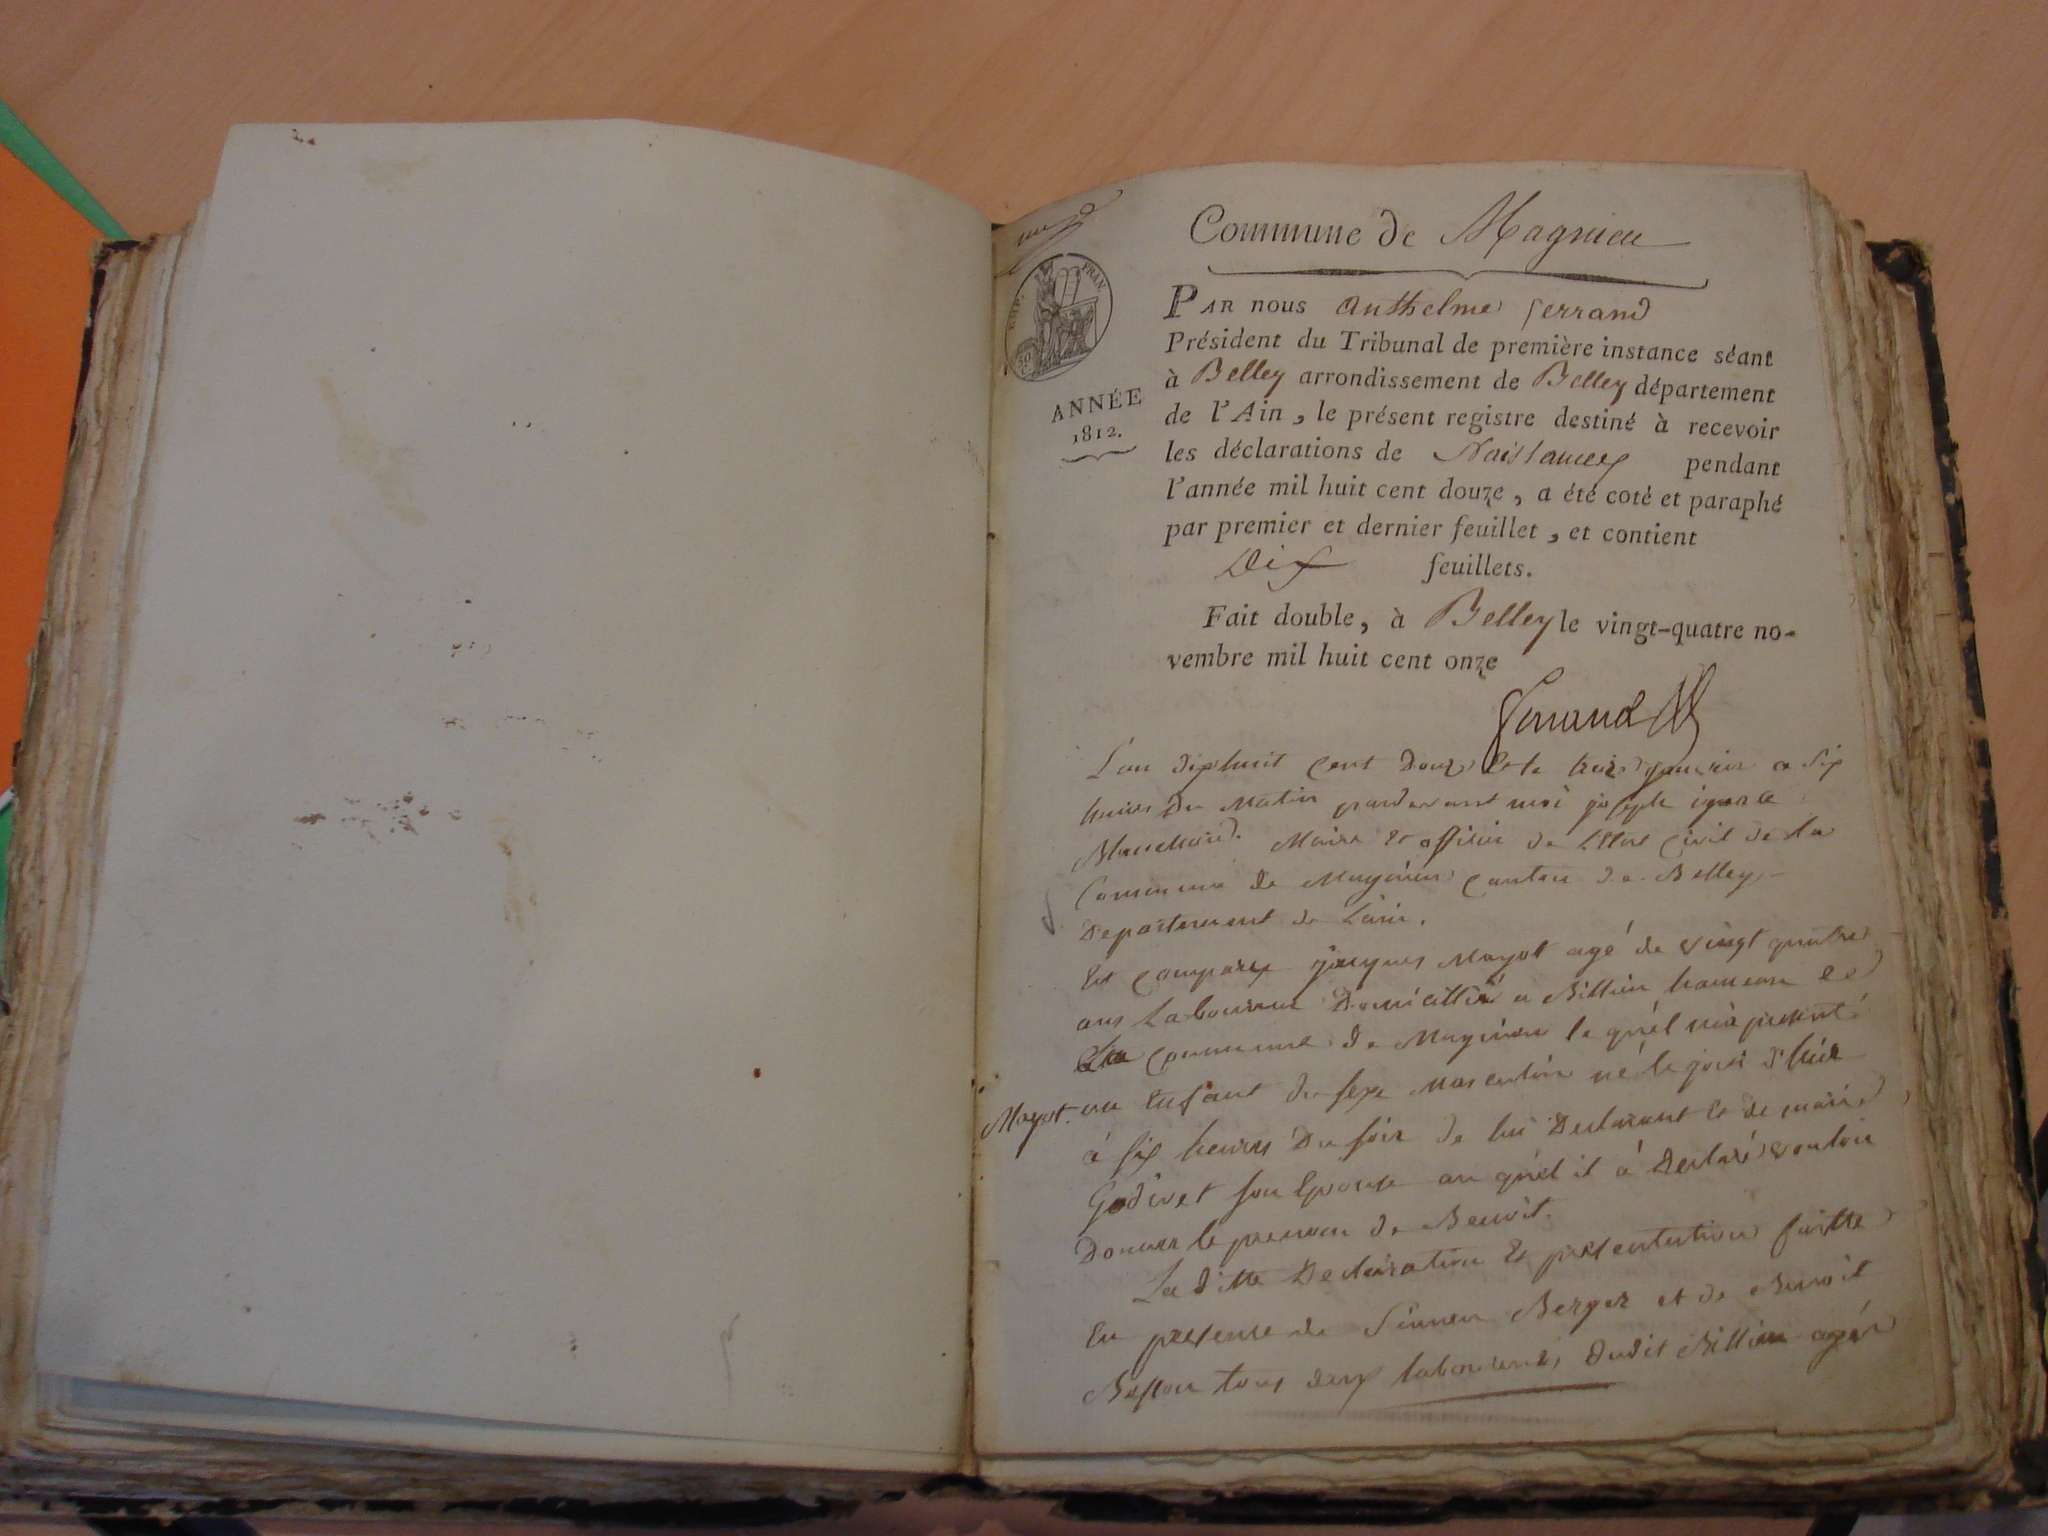 un
Commune de Magnieu
EMP. FRAN.
ANNÉE
1812.
PAR nous anthelme ferrand
Président du Tribunal de première instance séant
à Belley arrondissement de Belley département
de l'Ain, le présent registre destiné à recevoir
les déclarations de Naissances pendant
l'année mil huit cent douze, a été coté et paraphé
par premier et dernier feuillet, et contient
Dix feuillets.
Fait double, à Belley le vingt-quatre no-
vembre mil huit cent onze
ferrand
L'an dixhuit cent Douze Et le trois janvier a six
heures du Matin pardevant moi joseph
Maire & officier de L'Etat Civil de la
Commune de Magnieu canton de Belley
Departement de Lain.
Est comparu jacques Mayot agé de vingt quatre
ans Laboureur Domicillié a Billieu hameau
commune de Magnieu le quel m'a presenté
Mayot. un Enfant du sexe Masculin né le jour d'hier
à six heures Du soir de lui Declarant Et de marie
Godivet son Epouse au quel il à Declaré vouloir
Donner le prenom de Benoit.
La ditte Declaration & presentation faitte
En presence de Berger et de Benoit
tous deux laboureurs dudit Billieu agés